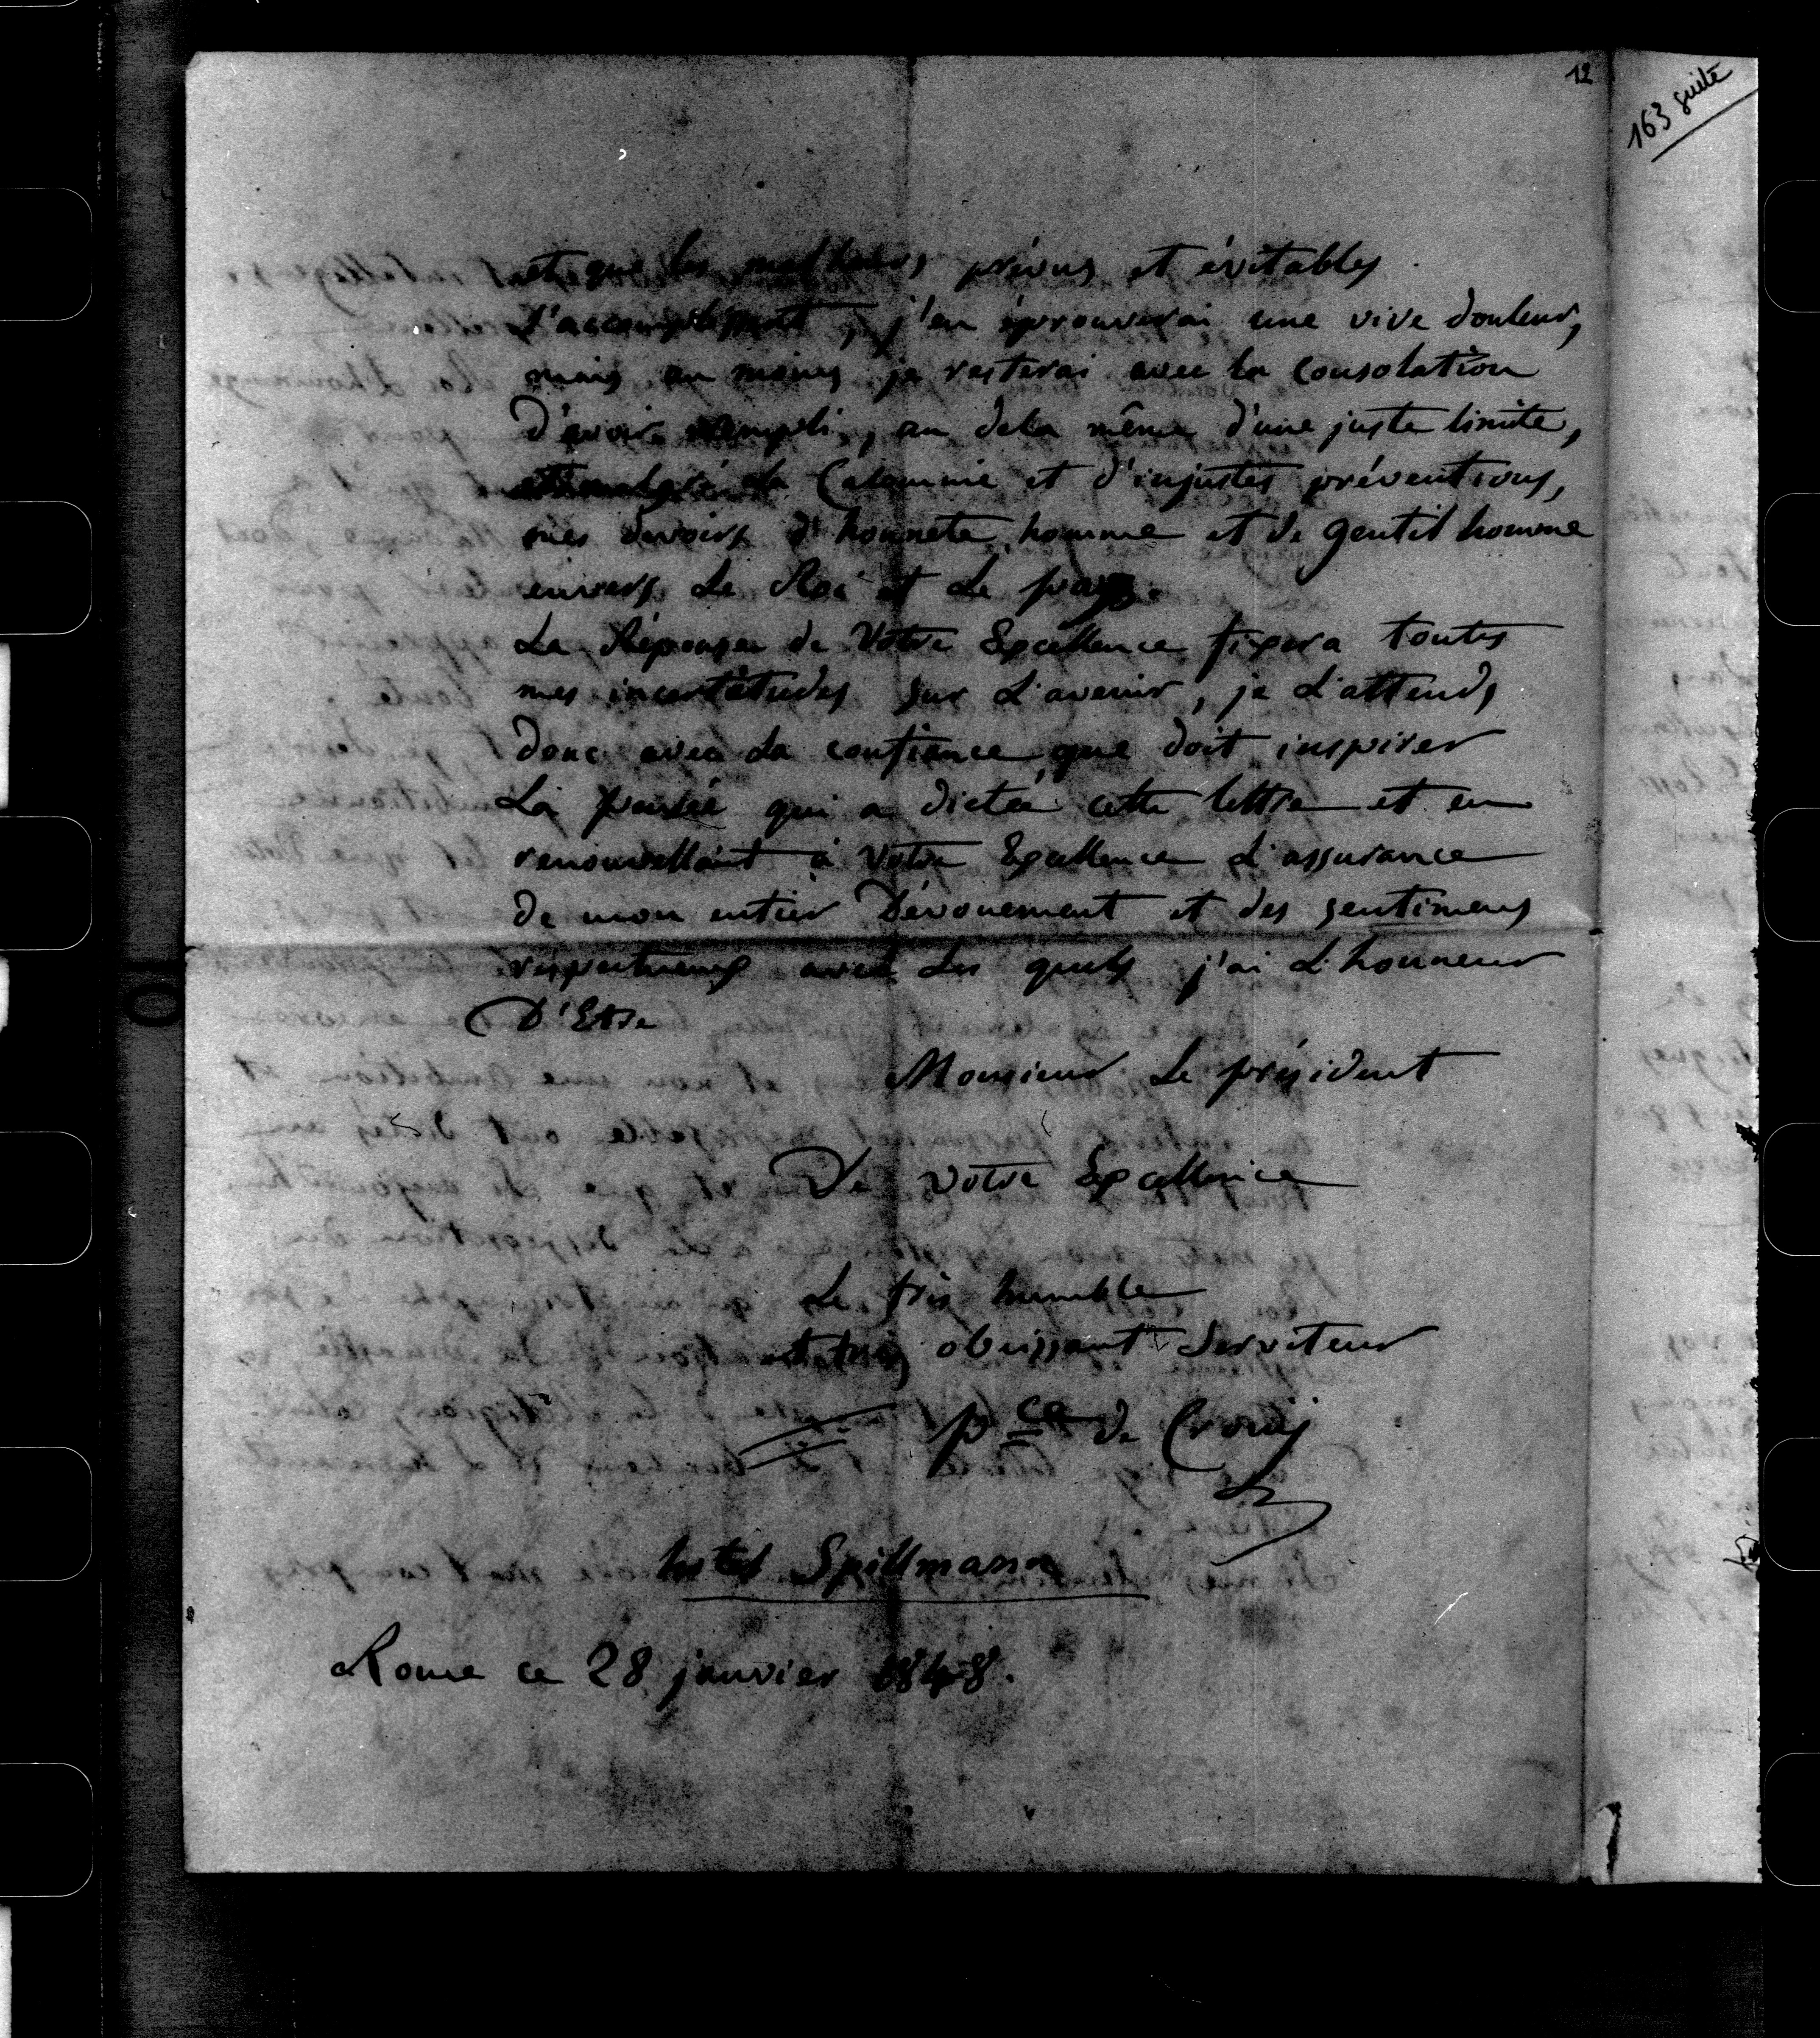 12
163 suite
et que les malheurs prévus et évitables
s'accomplissent, j'en éprouverai une vive douleur,
mais au moins je resterai avec la consolation
D'avoir rempli, au dela même d'une juste limite,
et malgré la Calomnie et d'injustes préventions,
mes devoirs d'honnete homme et de gentilhomme
envers Le Roi et Le pays.
La Réponse de Votre Excellence fixera toutes
mes incertitudes sur L'avenir, je L'attends
donc avec La confiance que doit inspirer
La pensée qui a dictée cette lettre et en
renouvellant à Votre Excellence L'assurance
de mon entier Dévouement et des sentimens
respectueux avec Les quels j'ai L'honneur
D'Etre
Monsieur Le président
De Votre Excellence
Le très humble
et très obeissant Serviteur
pce de Crouij
hotel Spillmann
Rome ce 28 janvier 1848.